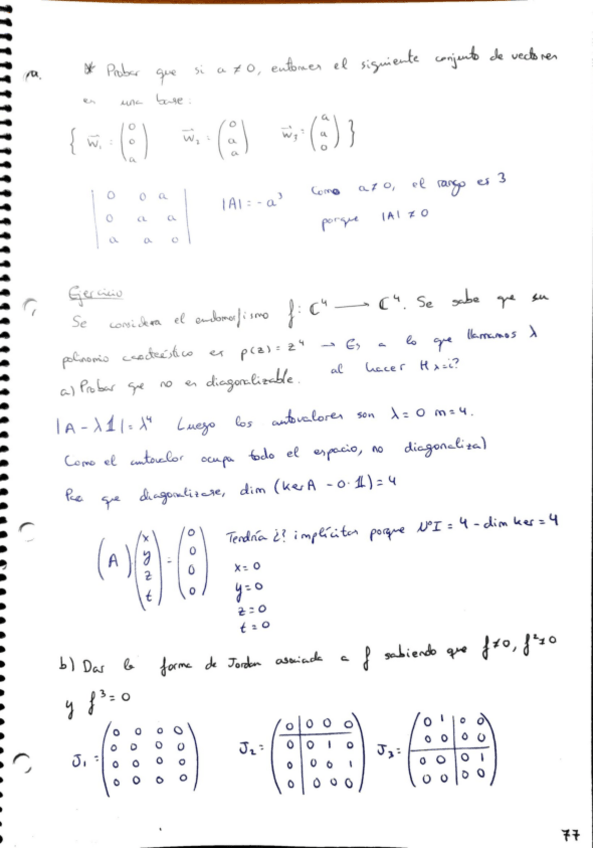 * Probar que si a ≠ 0, entonces el siguiente conjunto de vectores
es una base:
{ w⃗₁ = (0 0 a) w⃗₂ = (0 a a) w⃗₃ = (a a 0) }
| 0 0 a |
| 0 a a |
| a a 0 |
|A| = -a³ Como a ≠ 0, el rango es 3
porque |A| ≠ 0
Ejercicio
Se considera el endomorfismo f: ℂ⁴ → ℂ⁴. Se sabe que su
polinomio característico es p(z) = z⁴ → Es a lo que llamamos λ
al hacer
a) Probar que no es diagonalizable.
|A - λ𝟙| = λ⁴ Luego los autovalores son λ = 0 m = 4.
Como el autovalor ocupa todo el espacio, no diagonaliza)
Para que diagonalizase, dim (ker A - 0·𝟙) = 4
(A) (x y z t) = (0 0 0 0)
Tendría ¿? implícitas porque NºI = 4 - dim ker = 4
x = 0
y = 0
z = 0
t = 0
b) Dar la forma de Jordan asociada a f sabiendo que f ≠ 0, f² ≠ 0
y f³ = 0
J₁ = (0 0 0 0 / 0 0 0 0 / 0 0 0 0 / 0 0 0 0) J₂ = (0 0 0 0 / 0 0 1 0 / 0 0 0 1 / 0 0 0 0) J₃ = (0 1 0 0 / 0 0 0 0 / 0 0 0 1 / 0 0 0 0)
77